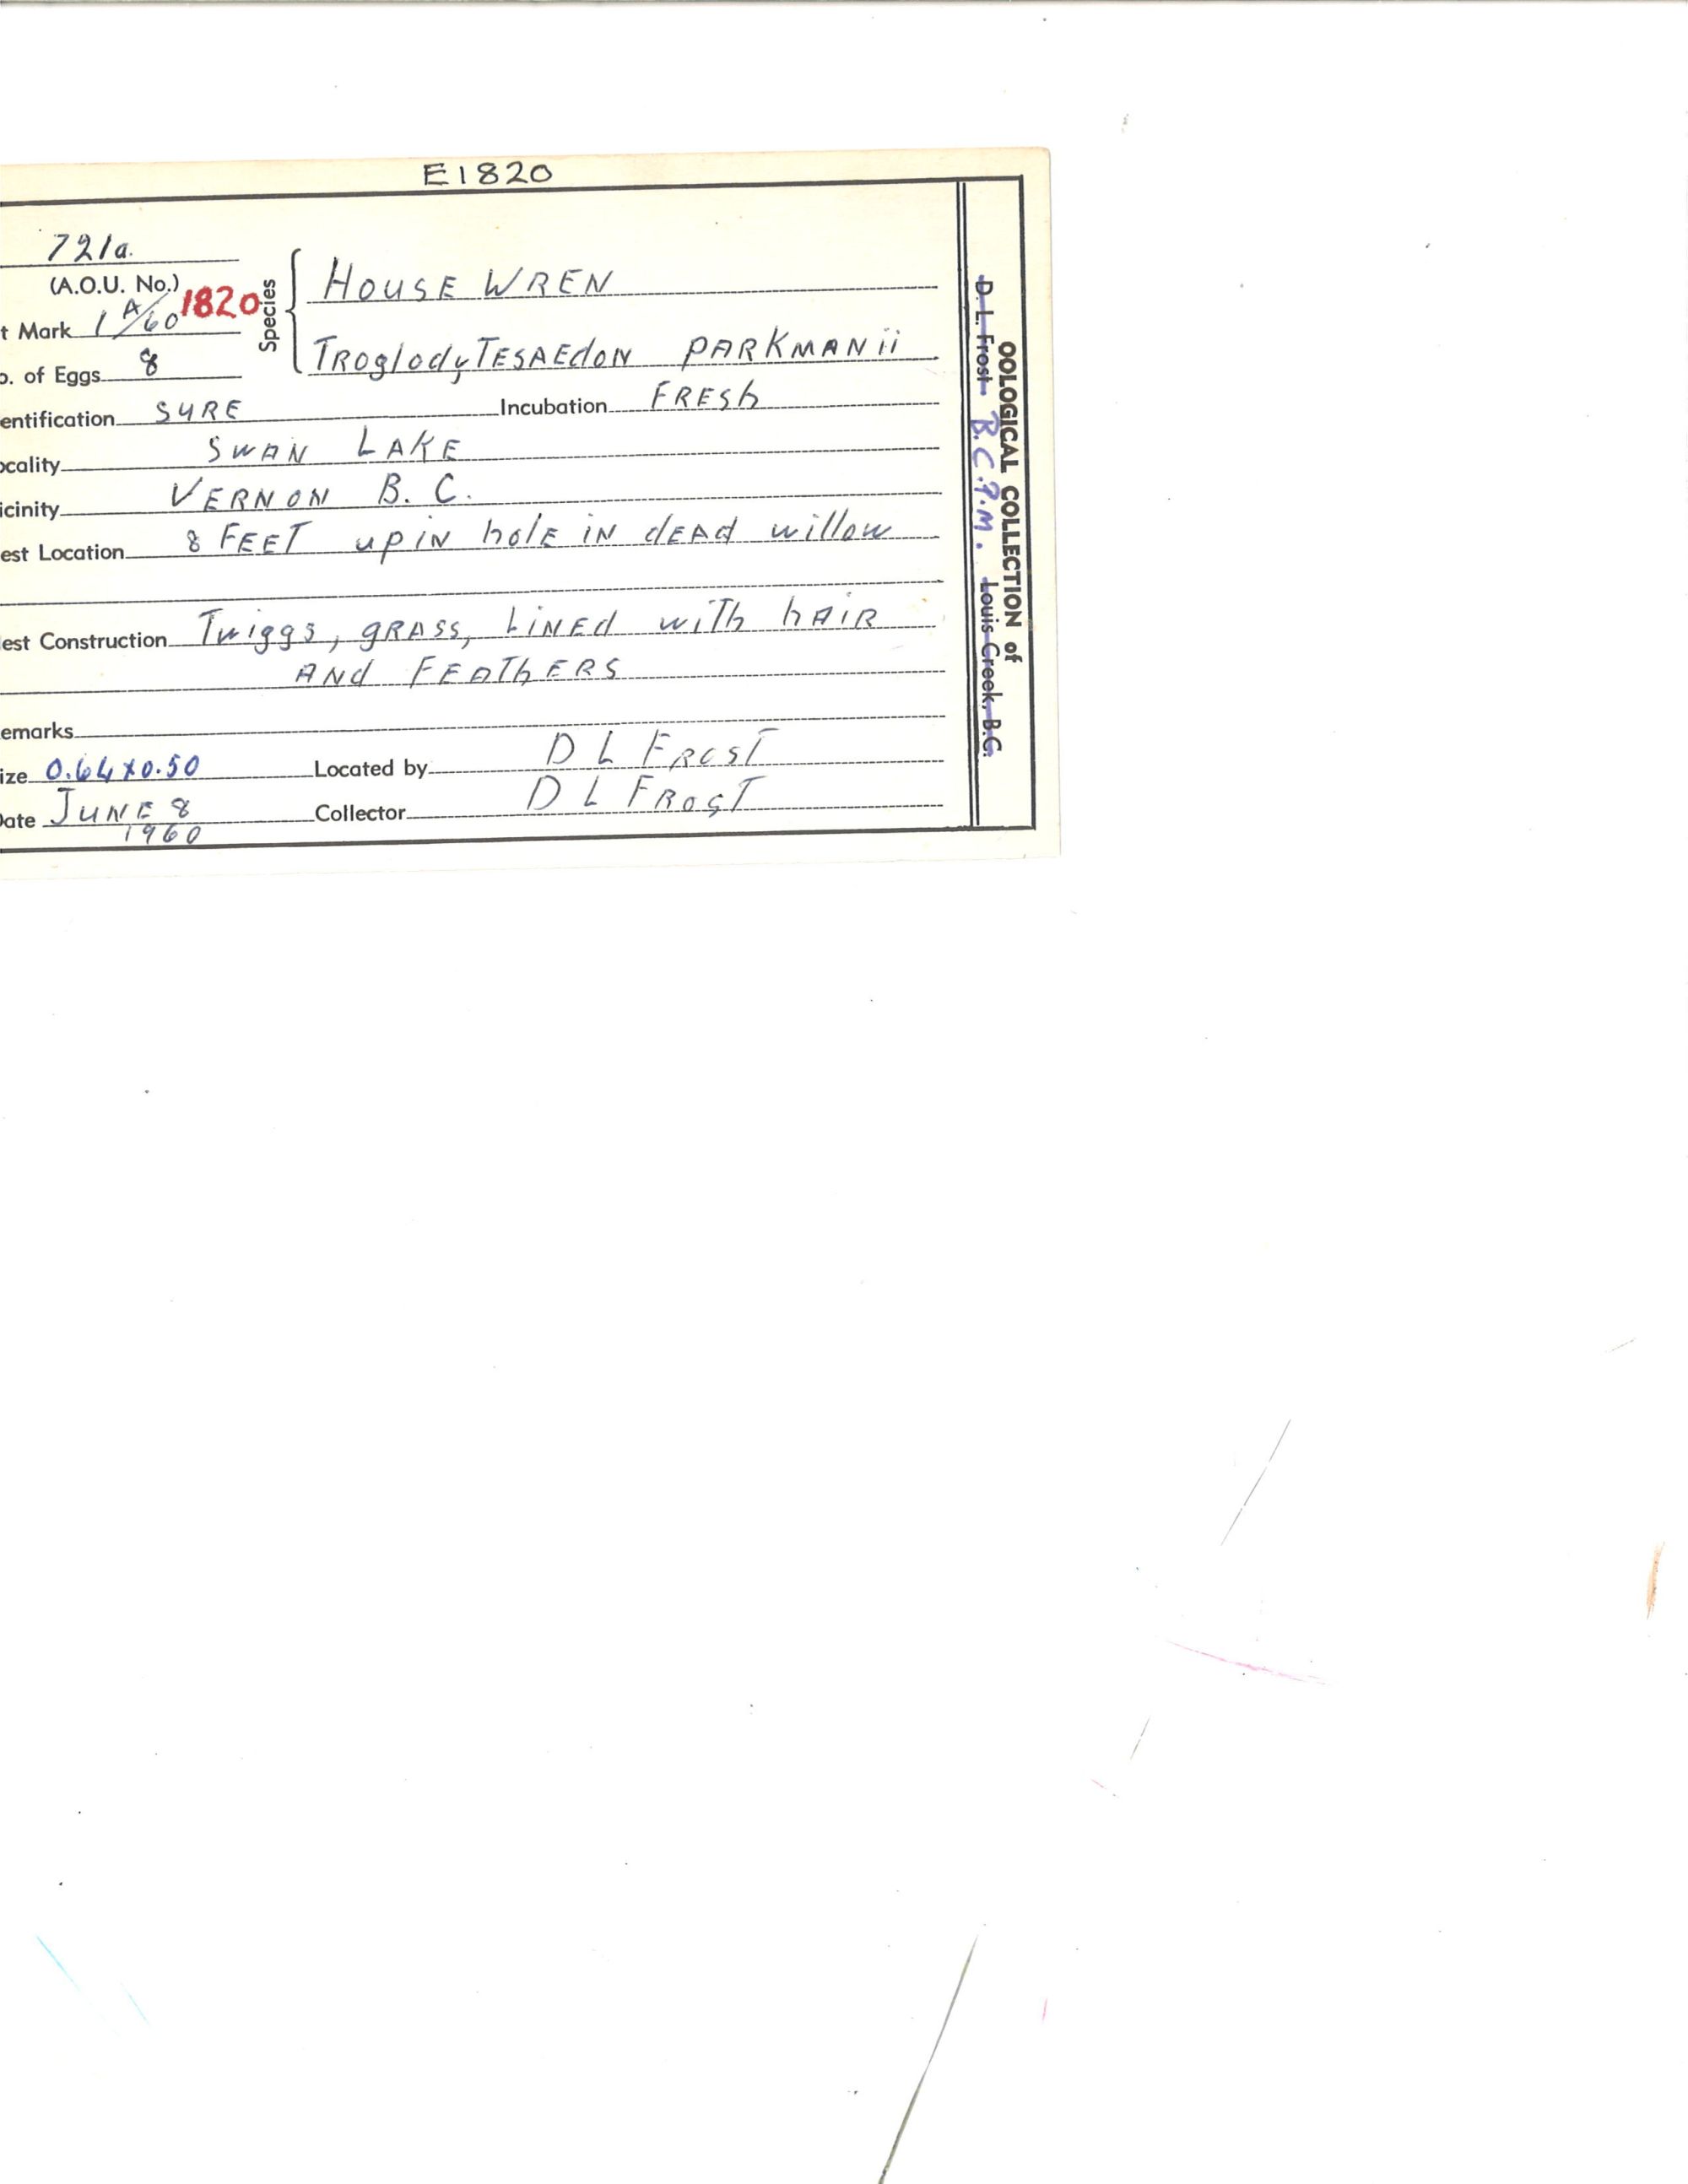 E1820
721a.
(A.O.U. No.)
t Mark 1 A/60 1820
o. of Eggs 8
Species
HOUSE WREN
TROglodyTESAEdON PARKMANii
entification SURE Incubation FRESh
ocality SWAN LAKE
icinity VERNON B. C.
est Location 8 FEET up iN holE iN dEAd willow
est Construction Twiggs, gRASS, LiNEd wiTh hAiR
ANd FEAThERS
emarks
ize 0.64x0.50 Located by D L FROST
ate JUNE 8 Collector D L FROST
1960
OOLOGICAL COLLECTION of
D. L. Frost B.C.P.M. Louis Creek, B.C.